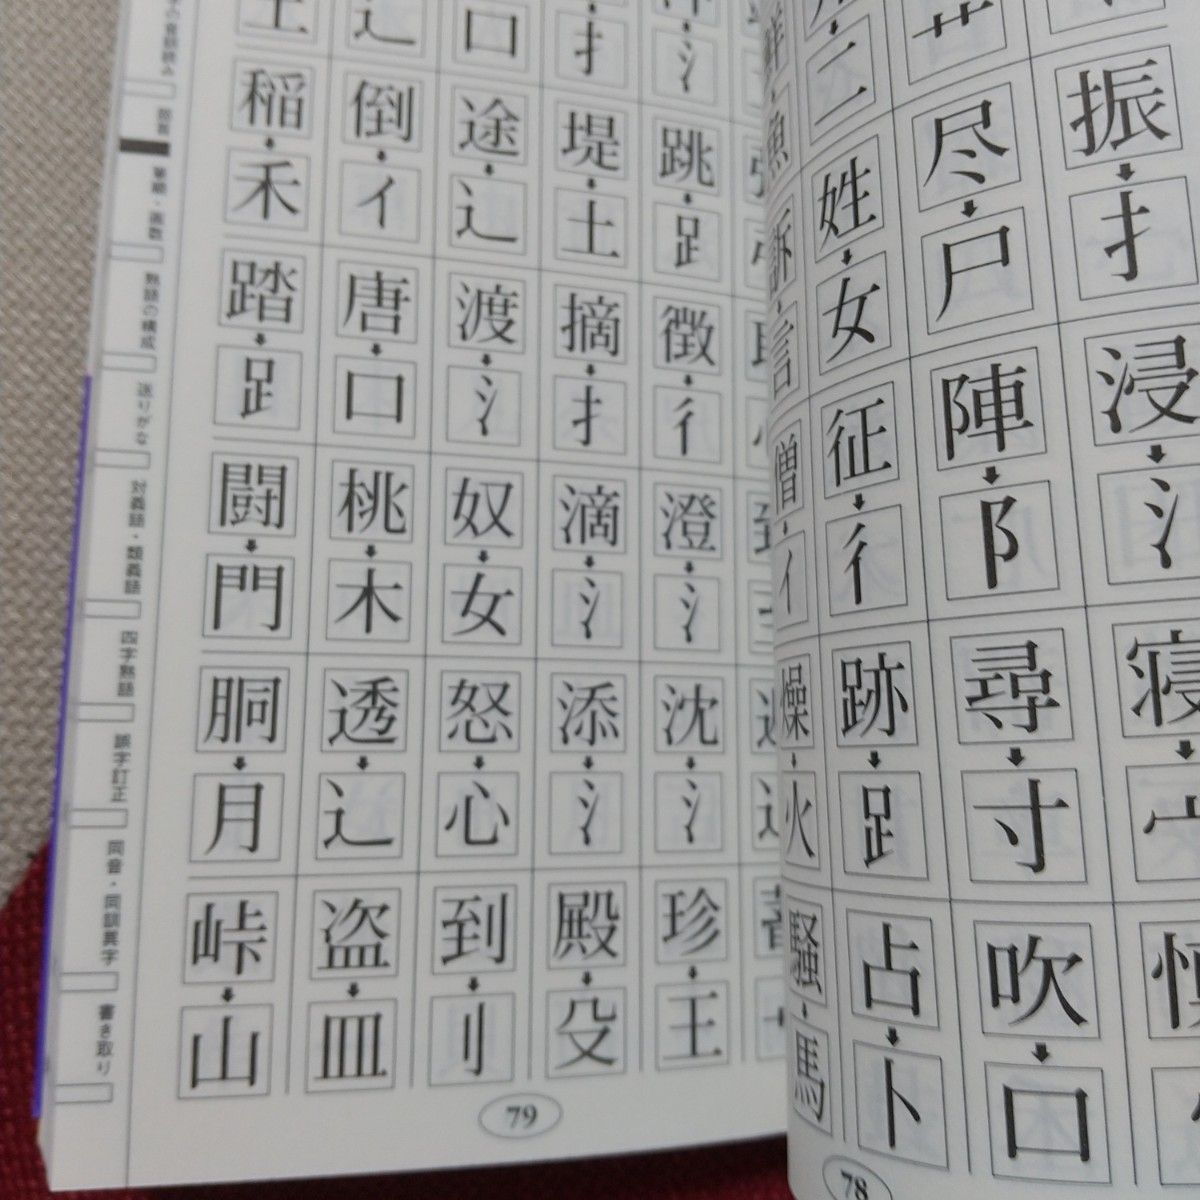 振
扌
浸
氵
尽
尸
陣
阝
尋
寸
吹
口
二
姓
女
征
彳
跡
𧾷
占
卜
訴
言
僧
イ
燥
火
騒
馬
78
氵
跳
𧾷
徴
彳
澄
氵
沈
氵
珍
王
扌
堤
土
摘
扌
滴
氵
添
氵
殿
殳
口
途
辶
渡
氵
奴
女
怒
心
到
刂
辶
倒
イ
唐
口
桃
木
透
辶
盗
皿
稲
禾
踏
𧾷
闘
門
胴
月
峠
山
79
部首
筆順・画数
熟語の構成
送りがな
対義語・類義語
四字熟語
誤字訂正
同音・同訓異字
書き取り